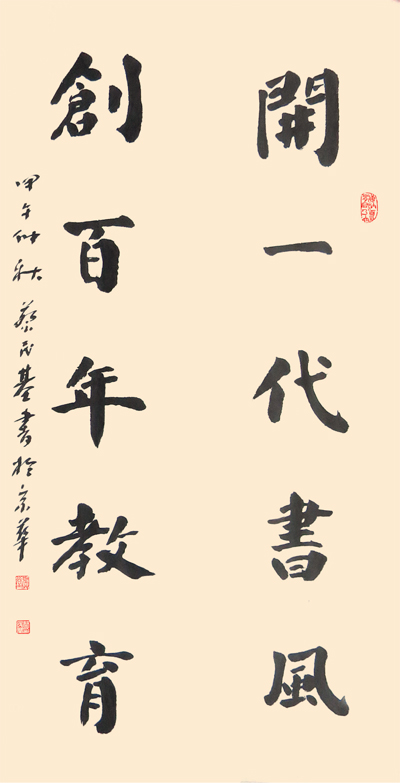 開一代書風
創百年教育
甲午仲秋蔡民基書於京華